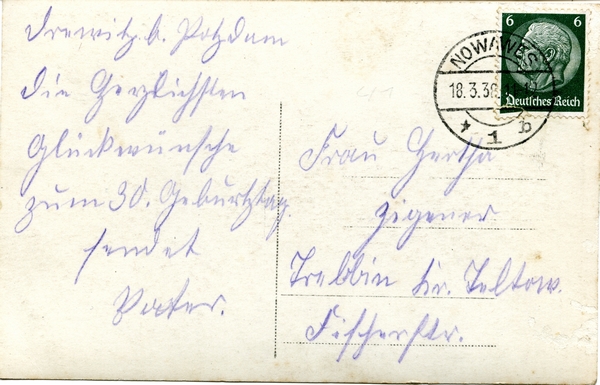 Drewitz b. Potzdam
die Herzlichsten
Glückwünsche
zum 30. Geburtztag
sendet
Vater.
6 6
Deutsches Reich
NOWAWES
18.3.36
* 1 b
Frau Hertha
Zigener
Trebbin Kr. Teltow.
Fischerstr.